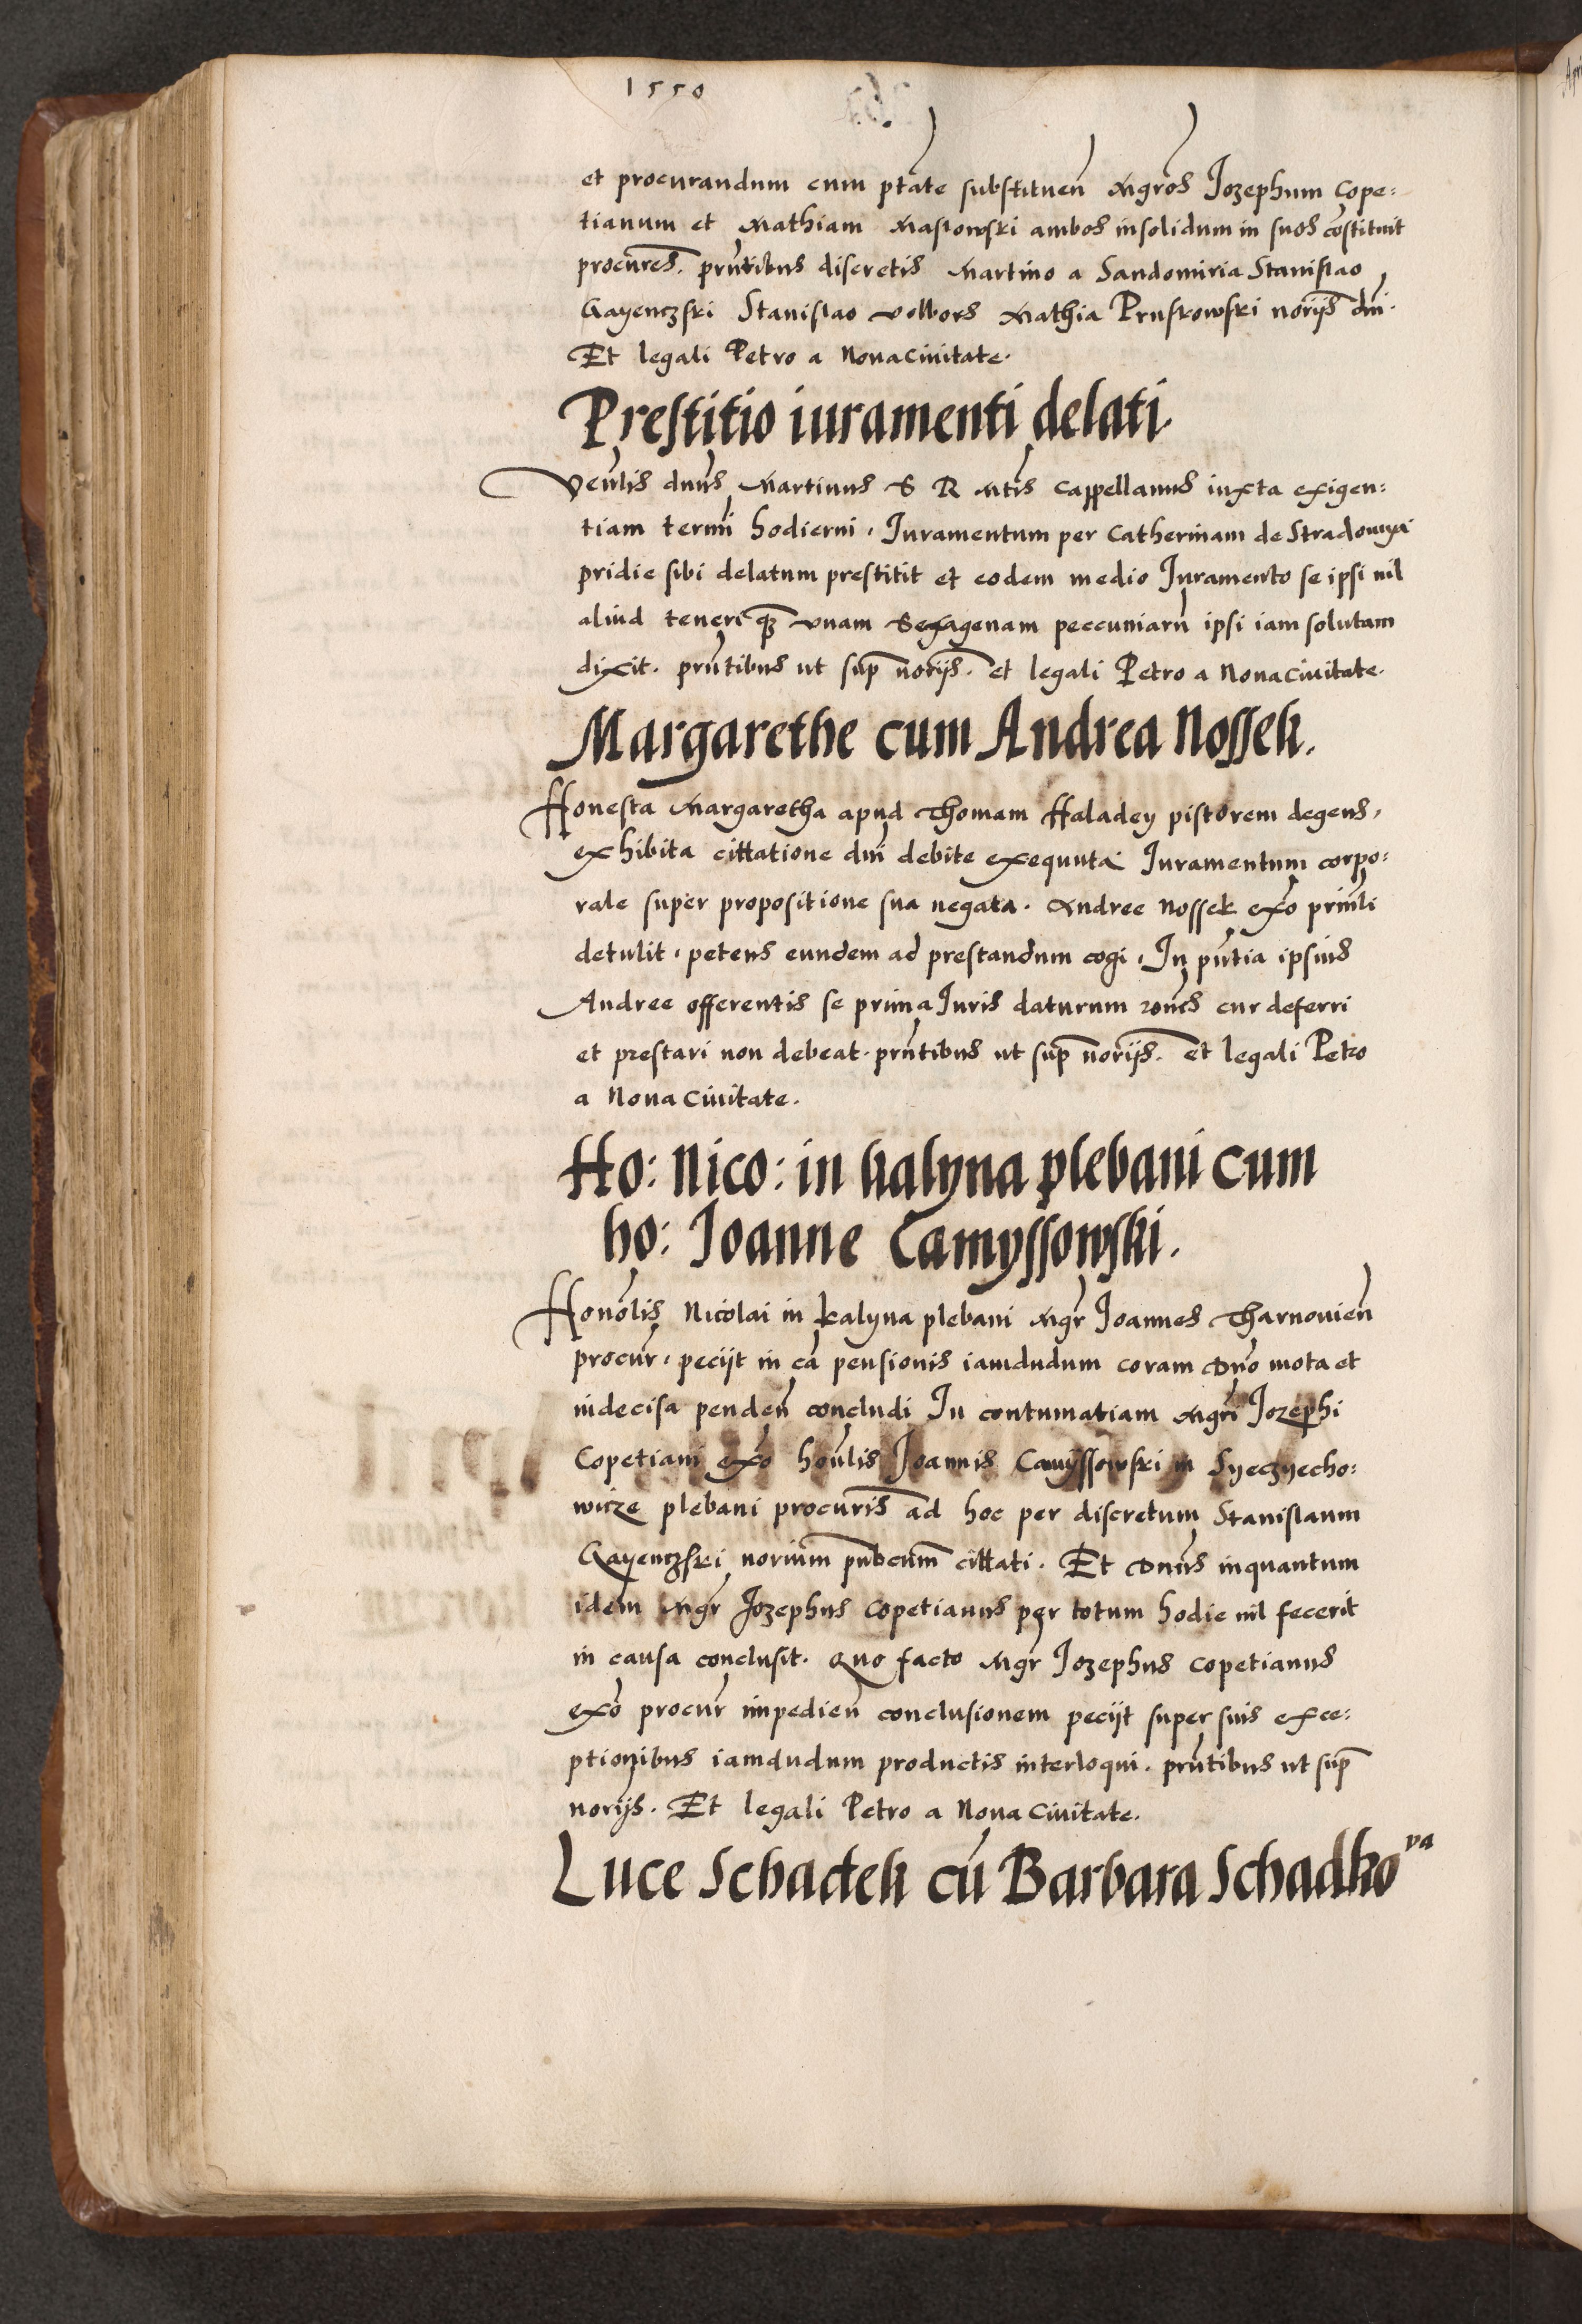 1550
et procurandum cum ptāte substituen̄ Mgros Jozephum Cope:
tianum et Mathiam Maslowski ambos insolidum in suos cōstituit
procūres. prn̄tibus discretis Martino a Sandomiria Stanislao
Gayenczski Stanislao volbors Mathia Pruskowski norijs dni.
Et legali Petro a Nova Civitate.
Prestitio iuramenti delati.
Ven̄lis dnus Martinus S R Mtis Cappellanus iuxta exigen:
tiam termi hodierni. Iuramentum per Catherinam de Stradomya
pridie sibi delatum prestitit et eodem medio Iuramento se ipsi nil
aliud teneri qz vnam Sexagenam peccuniaru ipsi iam solutam
dixit. prn̄tibus ut sup norijs. et legali Petro a Nova Civitate.
Margarethe cum Andrea Nossek.
Honesta Margaretha apud Thomam Haladey pistorem degens,
exhibita cittatione dni debite exequuta Iuramentum corpo:
rale super propositione sua negata. Andree Nossek exo prin̄li
detulit. petens eundem ad prestandum cogi. In pn̄tia ipsius
Andree offerentis se prima Iuris daturum rones cur deferri
et prestari non debeat. prn̄tibus ut sup norijs. et legali Petro
a Nova Civitate.
Ho: Nico: in kalyna plebani cum
ho: Joanne Camyssowski.
Honōlis Nicolai in kalyna plebani Mgr Joannes Tharnovien̄
procur. pecijt in cā pensionis iamdudum coram Dn̄o mota et
indecisa penden̄ concludi In contumatiam Mgri Jozephi
Copetiani exo hon̄lis Joannis Camyssowski in Syeczyecho:
wicze plebani procuris ad hoc per discretum Stanislaum
Gayenczski norium pubcum cittati. Et Dnus inquantum
idem Mgr Jozephus Copetianus per totum hodie nil fecerit
in causa conclusit. Quo facto Mgr Jozephus Copetianus
exo procur impedien̄ conclusionem pecijt super suis exce:
ptionibus iamdudum productis interloqui. prn̄tibus ut sup
norijs. Et legali Petro a Nova Civitate.
Luce Schadek cū Barbara Schadkova